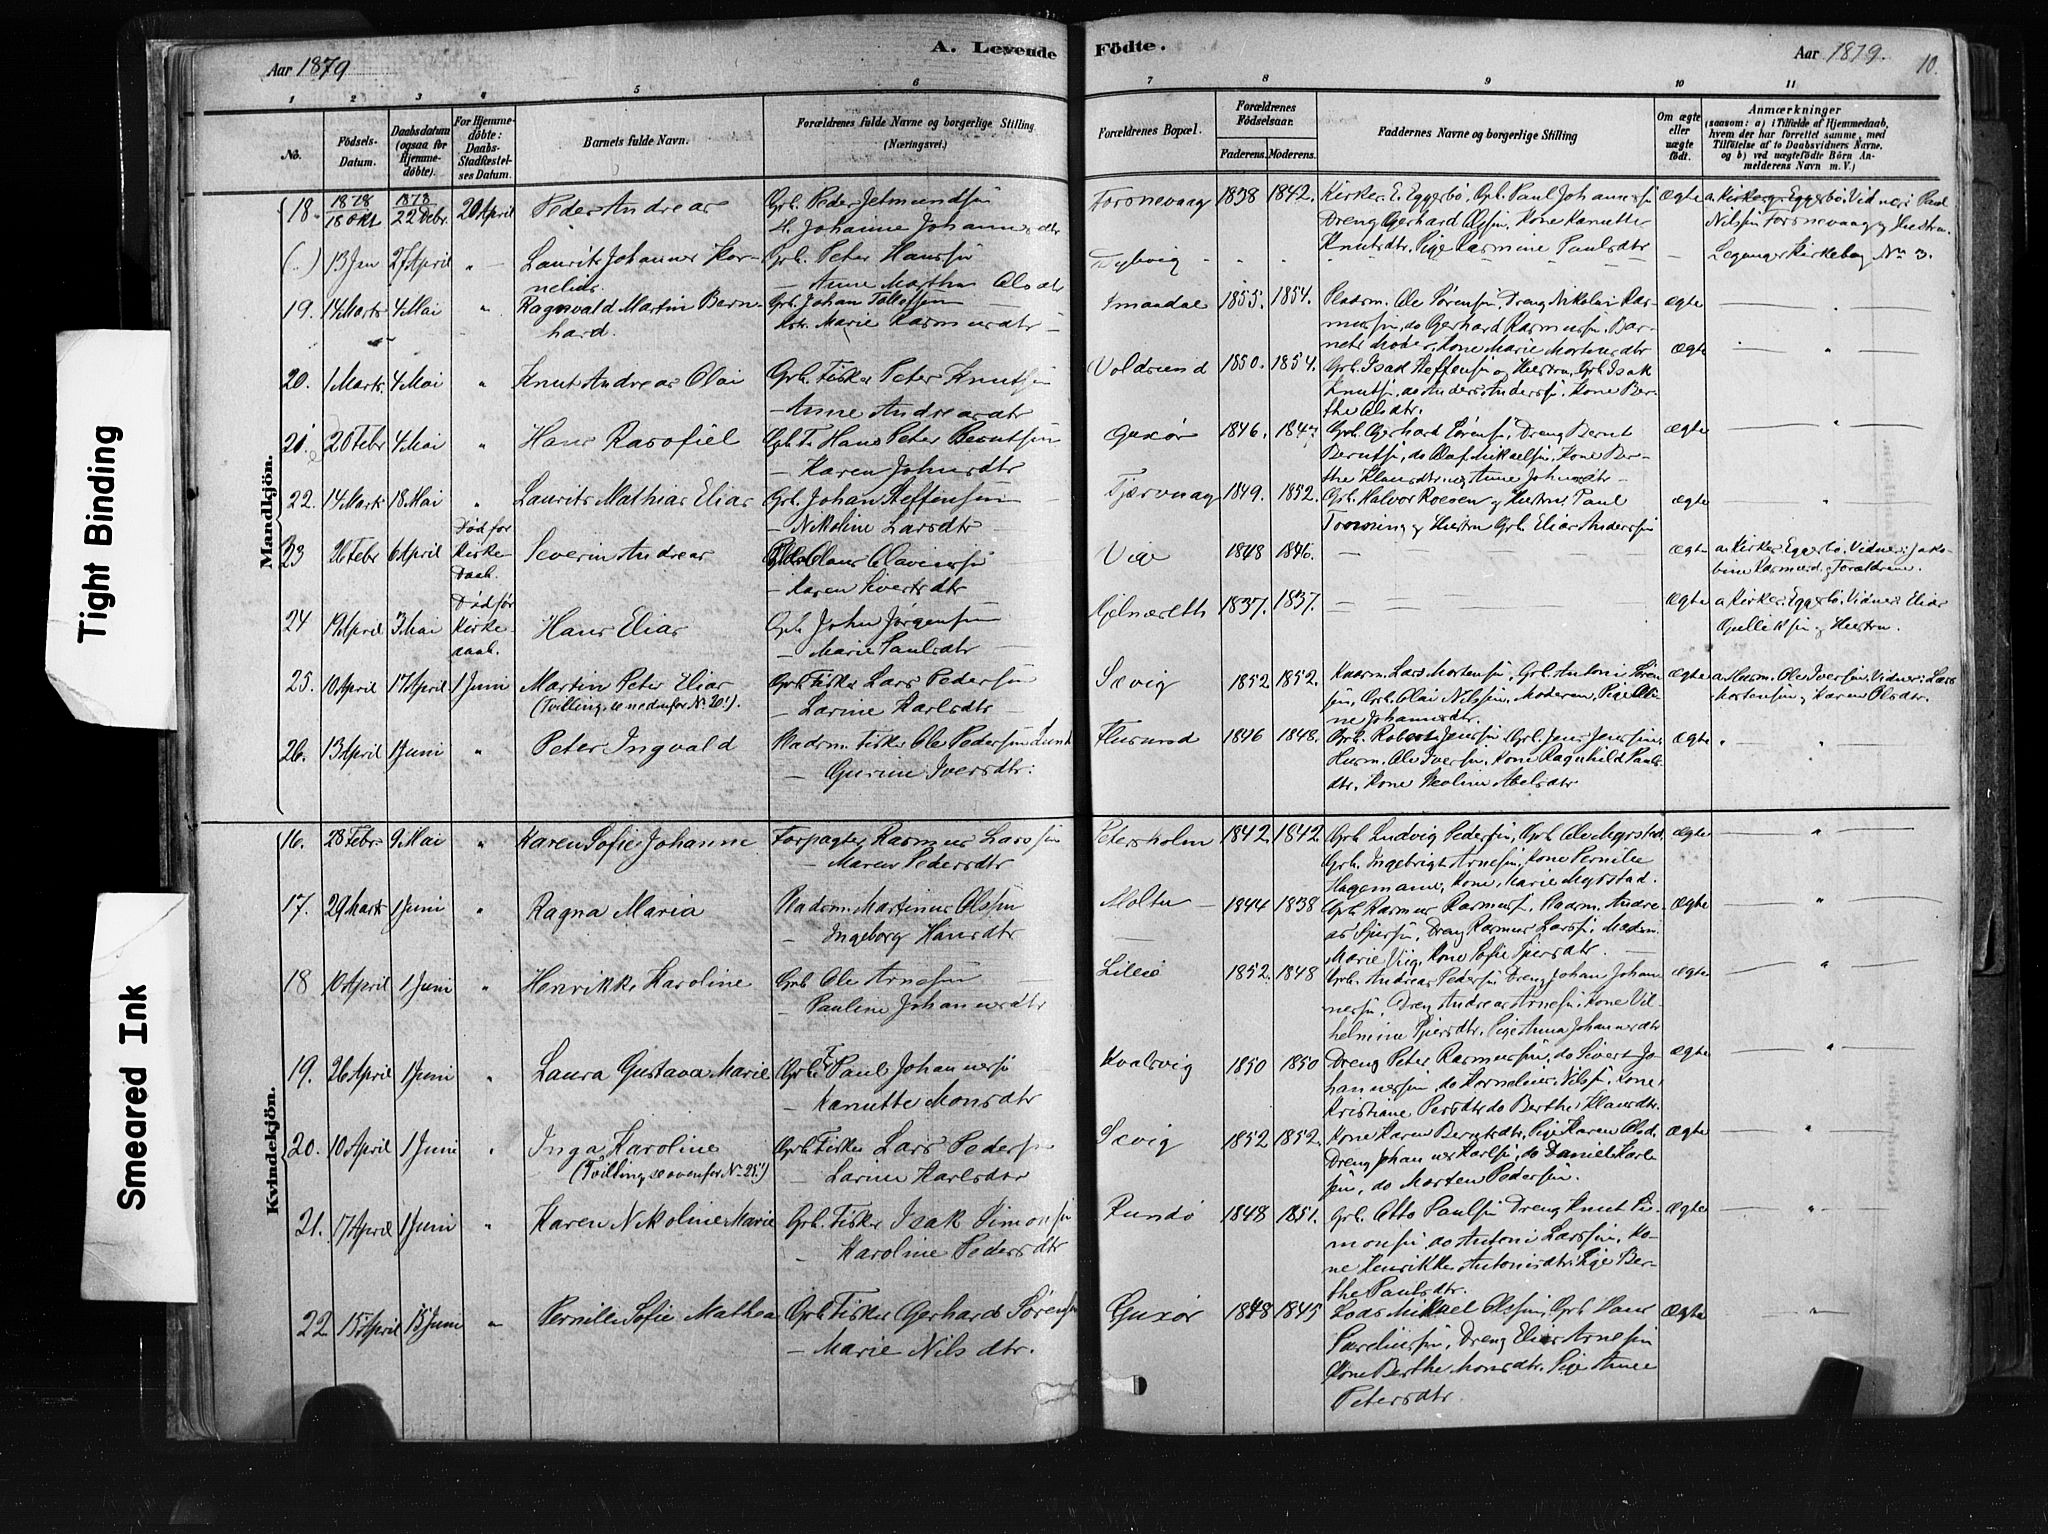 Tight Binding
Smeared Ink
A. Levende Födte.
Aar 1879
Aar 1879. 10.
1 2 3 4 5 6 7 8 9 10 11
No.
Födsels-
Datum.
Daabsdatum
(ogsaa for
Hjemme-
döbte).
For Hjemme-
döbte:
Daabs-
Stadfæstel-
ses Datum.
Barnets fulde Navn.
Forældrenes fulde Navne og borgerlige Stilling
(Næringsvei.)
Forældrenes Bopæl.
Forældrenes
Födselsaar.
Faderens. Moderens.
Faddernes Navne og borgerlige Stilling
Om ægte
eller
uægte
födt.
Anmærkninger
(saasom: a) i Tilfælde af Hjemmedaab,
hvem der har forrettet samme, med
Tilföielse af to Daabsvidners Navne.
og b) ved uægtefödte Börn An-
melderens Navn m. V.)
Mandkjön.
18. 1878 18 Okt 1878 22 Debr. 20 April Peder Andreas Grb. Peder Jetmundsen
H. Johanne Johannesdtr
Forsnevaag 1838 1842. Kirkes. E. Eggesbö, Grb. Paul Johannessen
Dreng Gerhard Olsen, Kone Kanutte
Knutsdtr. Pige Rasmine Paulsdtr
ægte a. Kirkes. Eggesbö. Vidner: Paul
Nilsen Forsnevaag og Hustru.
(..) 13 Jan 27 April " Laurits Johannes Kor-
nelius. Grb. Peter Hansen
— Anne Martha Olsdtr
Dybvig " " " — Leganger Kirkebog No 3.
19. 14 Marts 4 Mai " Ragnvald Martin Bern-
hard. Grb. Johan Tollefsen
Kone Marie Rasmusdtr
Imandal 1855. 1854. Pladsm. Ole Sörensen, Dreng Nikolai Ras-
mussen, do Gerhard Rasmussen. Bar-
nets Moder, Kone Marie Mortensdtr
ægte — " —
20. 1 Marts 4 Mai " Knut Andreas Olai Grb. Fisker Peter Knutsen
— Anne Andreasdtr
Voldsund 1850. 1854. Grb. Isak Steffensen og Hustru, Grb. Isak
Knutsen, do Anders Andersen. Kone Ber-
the Olsdtr.
ægte — " —
21. 20 Febr 4 Mai " Hans Rasofiel Grb. F. Hans Peter Berntsen
— Karen Johnsdtr
Gurskør 1846. 1847 Grb. Gerhard Sörensen, Dreng Bernt
Berntsen, do Olaf Mikaelsen, Kone Ber-
the Klausdtr, Anne Johnsdtr
ægte "
22. 14 Marts 18 Mai " Laurits Mathias Elias Grb. Johan Steffensen
— Nikoline Larsdtr
Tjervaag 1849. 1852. Grb. Halvor Roesen og Hustru, Paul
og Hustru Grb. Elias Andersen
ægte "
23 26 Febr 6 April Död för
Kirke-
Daab. Severin Andreas Claus Olavussen
— Karen Sivertsdtr
Vige 1848 1846. — — ægte a. Kirkes. Eggesbö. Vidner: Jako-
bine Rasmusd. og Forældrene.
24 19 April 3 Mai Död för
Kirke-
daab. Hans Elias Grb John Jörgensen
— Marie Paulsdtr
1837. 1837. — — ægte a Kirkes. Eggesbö. Vidner: Elias
Gulliksen og Hustru.
25. 10 April 17 April 1 Juni Martin Peter Elias
(Tvilling, se nedenfor No. 20.).
Grb Fisker Lars Pedersen
— Larine Karlsdtr
Sævig 1852 1852. Lars Mortensen, Grb. Antoni Sören-
sen, Grb. Olai Nilssen, Moderen, Pige Oli-
ne Johannesdtr.
ægte a Husm. Ole Iversen, Vidner: Lars
Mortensen og Karen Olsdtr.
26. 13 April 1 Juni " Peter Ingvald Pladsm. Fisker Ole Pedersen
— Gurine Iversdtr:
Flusund 1846 1848. Grb. Robert Jensen, Grb. Jens Jensen,
Husm. Ole Iversen, Kone Ragnhild Pauls-
dtr. Kone Neoline Abelsdtr
ægte " "
Kvindekjön.
16. 28 Febr. 9 Mai " Karen Sofie Johanne Forpagter Rasmus Larssen
— Maren Pedersdtr
Petersholm 1842. 1842. Grb. Ludvig Pedersen, Grb Ole Myrstad,
Grb. Ingebrigt Arnesen, Kone Pernille
Hagemann, Kone, Marie Myrstad.
ægte " —
17. 29 Marts 1 Juni " Ragna Maria Pladsm. Martinus Olssen
— Ingeborg Hansdtr
Moltu 1844 1838 Grb Rasmus Rasmussen, Pladsm. Andre-
as, Dreng Rasmus Larssen, Madam
Marie Viig, Kone Sofie
ægte — " —
18 10 April 1 Juni " Henrikke Karoline Grb Ole Arnesen
— Pauline Johannesdtr
Lillø 1852. 1848 Grb. Andreas Pedersen, Dreng Johan Johan-
nesen, Dreng Andreas Arnesen, Kone Vil-
helmine, Pige Anna Johannesdtr
ægte — " —
19. 26 April 1 Juni " Laura Gustava Marie Grb. F Paul Johannesen
— Kanutte Monsdtr
Kvalsvig 1850 1850 Dreng Peter Rasmussen, do Sivert Jo-
hannessen, do Kornelius Nilssen, Kone
Kristiane Persdtr, do Berthe Klausdtr.
ægte — " —
20. 10 April 1 Juni " Inga Karoline
(Tvilling se ovenfor No. 25.)
Grb Fisker Lars Pedersen
— Larine Karlsdtr
Sævig 1852 1852. Kone Karen Berntsdtr. Pige Karen Olsd.
Dreng Johannes Karlsen, do Daniel Karl-
sen, do Morten Pedersen.
ægte — " —
21. 17 April 1 Juni " Karen Nikoline Marie Grb. Fisker Isak Simonsen
— Karoline Pedersdtr
Rundö 1848 1851. Grb. Otto Paulsen Dreng Knut Si-
monsen, do Antoni Larssen, Ko-
ne Henrikke Antonisdtr, Pige Ber-
the Paulsdtr.
ægte — " —
22 15 April 15 Juni " Pernille Sofie Mathea Grb Fisker Gerhard Sörensen
— Marie Nilsdtr.
Gurskør 1848 1845 Lods Mikael Olssen, Grb Hans
Dreng Elias Arnesen
Kone Berthe Monsdtr. Pige Anne
Petersdtr.
ægte — " —